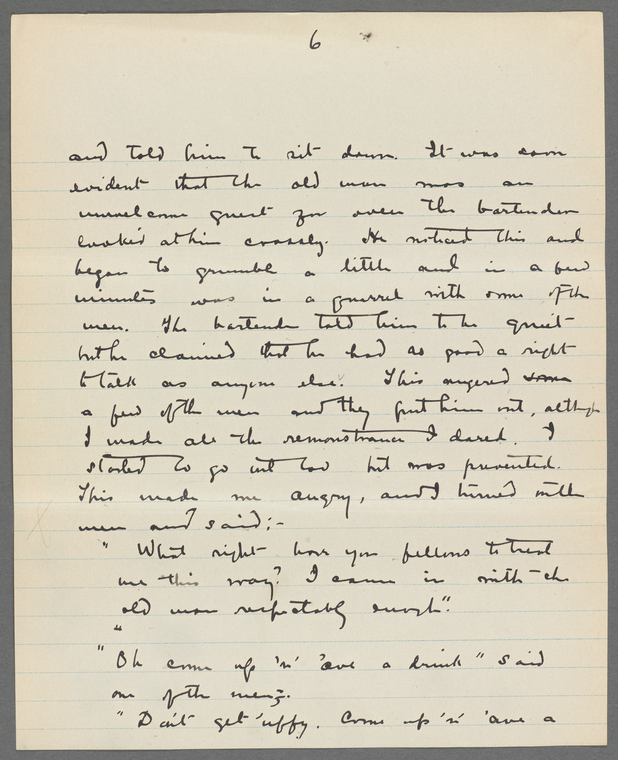 6
and told him to sit down. It was soon
evident that the old man was an
unwelcome guest for even the bartender
looked at him crossly. He noticed this and
began to grumble a little and in a few
minutes was in a quarrel with some of the
men. The bartender told him to be quiet
but he claimed that he had as good a right
to talk as anyone else. This angered some
a few of the men and they put him out, although
I made all the remonstrance I dared. I
started to go out too but was prevented.
This made me angry, and I turned on the
men and said:-
" What right have you fellows to treat
me this way? I came in with the
old man respectably enough".
"
"Oh come up 'n' 'ave a drink" said
one of the men.
" Don't get 'uffy. Come up 'n' 'ave a